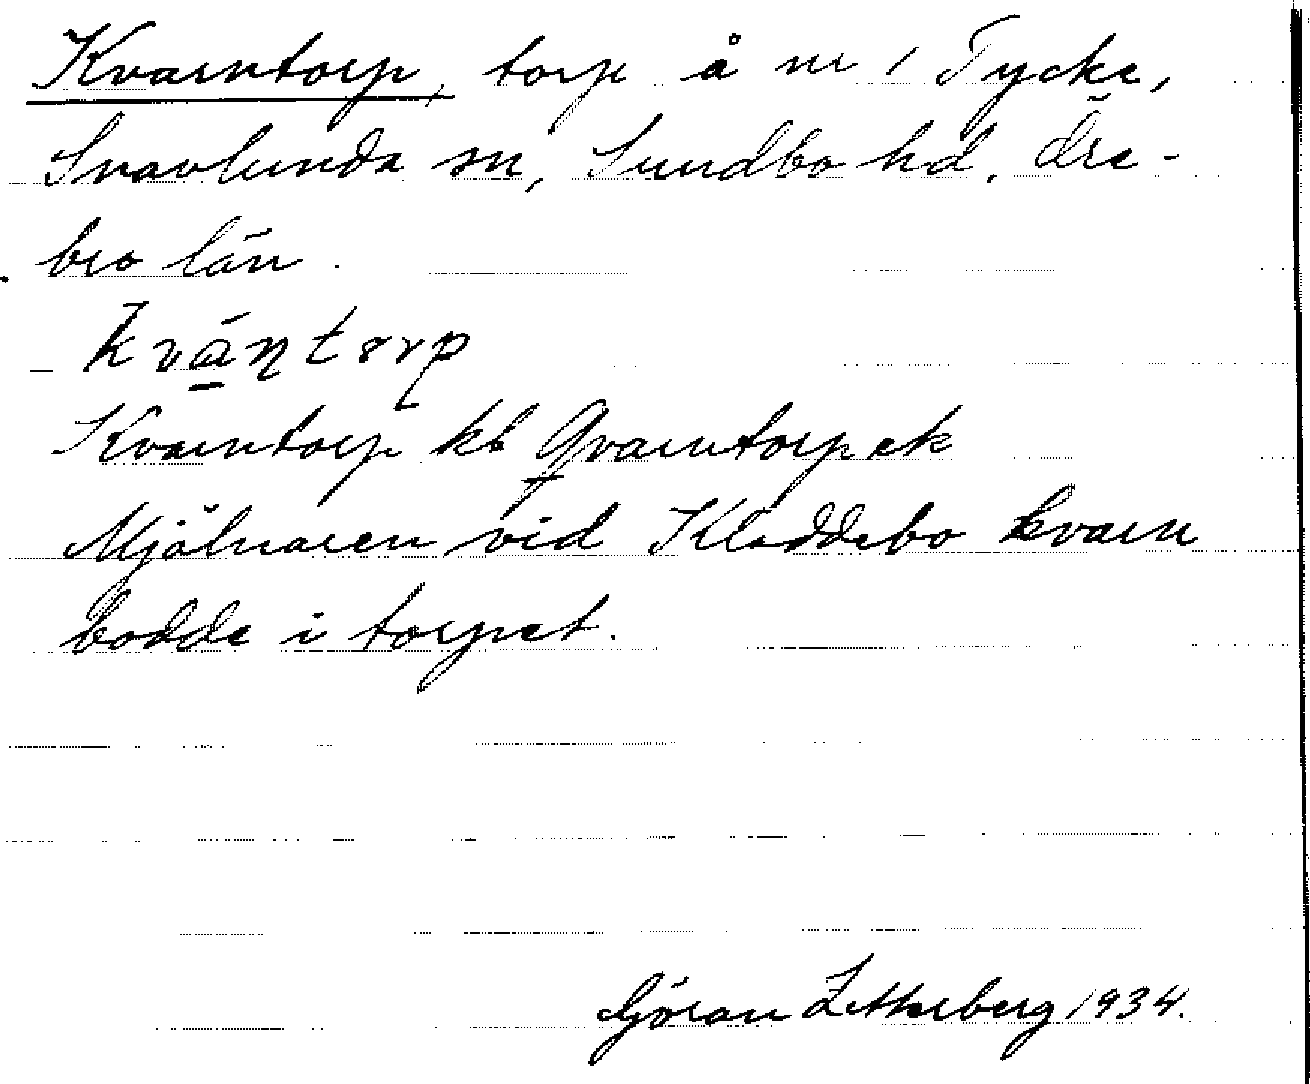 Kvarntorp, torp å nr 1 Tycke,
Snavlunda sn, Sundbo hd. Öre-
bro län.
kvàṇtorp
Kvarntorp kb Qvarntorp ek
Mjölnaren vid Kladdebo kvarn
bodde i torpet.
Göran Zetterberg 1934.